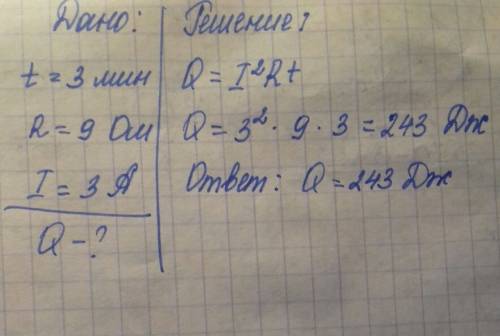 Дано:
t = 3 мин
R = 9 Ом
I = 3 А
Q - ?
Решение:
Q = I²Rt
Q = 3² · 9 · 3 = 243 Дж
Ответ: Q = 243 Дж